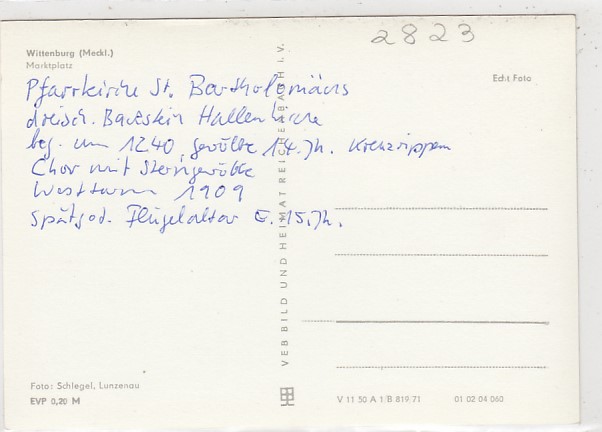 2823
Wittenburg (Meckl.)
Marktplatz
Echt Foto
Pfarrkirche St. Bartholomäus
dreisch. Backstein Hallenkirche
beg. um 1240, gewölbe 14. Jh. Kreuzrippen
Chor mit Sterngewölbe
Westturm 1909
Spätgot. Flügelaltar E. 15. Jh.
VEB BILD UND HEIMAT REICHENBACH I. V.
Foto: Schlegel, Lunzenau
EVP 0,20 M
V 11 50 A 1/B 819/71 01 02 04 060